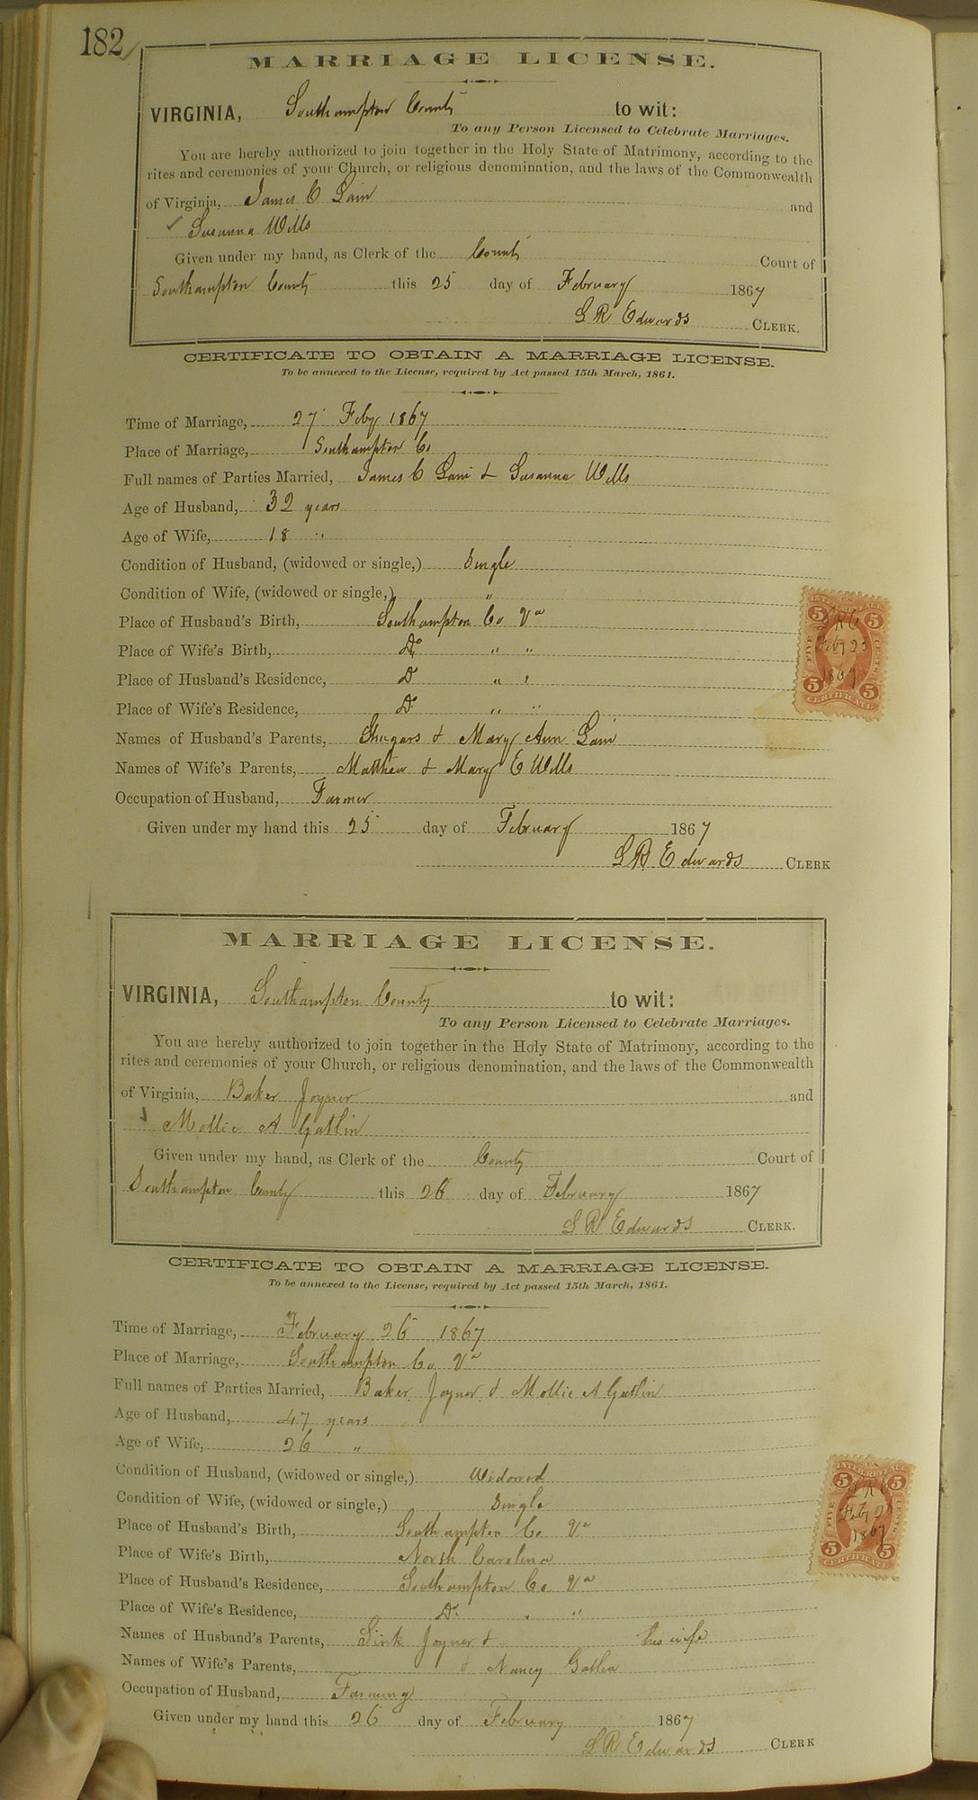 182
MARRIAGE LICENSE.
VIRGINIA, Southampton County to wit:
To any Person Licensed to Celebrate Marriages.
You are hereby authorized to join together in the Holy State of Matrimony, according to the
rites and ceremonies of your Church, or religious denomination, and the laws of the Commonwealth
of Virginia, James C Lain and
Susanna Wills
Given under my hand, as Clerk of the County Court of
Southampton County this 25 day of February 1867
L R Edwards CLERK.
CERTIFICATE TO OBTAIN A MARRIAGE LICENSE.
To be annexed to the License, required by Act passed 15th March, 1861.
Time of Marriage, 27 Feby 1867
Place of Marriage, Southampton Co
Full names of Parties Married, James C Lain & Susanna Wills
Age of Husband, 32 years
Age of Wife, 18 "
Condition of Husband, (widowed or single,) Single
Condition of Wife, (widowed or single,) "
Place of Husband's Birth, Southampton Co Va
Place of Wife's Birth, Do " "
Place of Husband's Residence, Do " "
Place of Wife's Residence, Do " "
Names of Husband's Parents, & Mary Ann Lain
Names of Wife's Parents, Matthew & Mary E Wills
Occupation of Husband, Farmer
Given under my hand this 25 day of February 1867
L R Edwards CLERK
5 5
1867
5 5
CERTIFICATE
MARRIAGE LICENSE.
VIRGINIA, Southampton County to wit:
To any Person Licensed to Celebrate Marriages.
You are hereby authorized to join together in the Holy State of Matrimony, according to the
rites and ceremonies of your Church, or religious denomination, and the laws of the Commonwealth
of Virginia, Baker Joyner and
Mollie A Gatlin
Given under my hand, as Clerk of the County Court of
Southampton County this 26 day of February 1867
L R Edwards CLERK.
CERTIFICATE TO OBTAIN A MARRIAGE LICENSE.
To be annexed to the License, required by Act passed 15th March, 1861.
Time of Marriage, February 26 1867
Place of Marriage, Southampton Co Va
Full names of Parties Married, Baker Joyner & Mollie A Gatlin
Age of Husband, 47 years
Age of Wife, 26 "
Condition of Husband, (widowed or single,) Widowed
Condition of Wife, (widowed or single,) Single
Place of Husband's Birth, Southampton Co Va
Place of Wife's Birth, North Carolina
Place of Husband's Residence, Southampton Co Va
Place of Wife's Residence, Do " "
Names of Husband's Parents, Joyner & his wife
Names of Wife's Parents, & Nancy Gatlin
Occupation of Husband, Farming
Given under my hand this 26 day of February 1867
L R Edwards CLERK
5 5
1867
5 5
CERTIFICATE